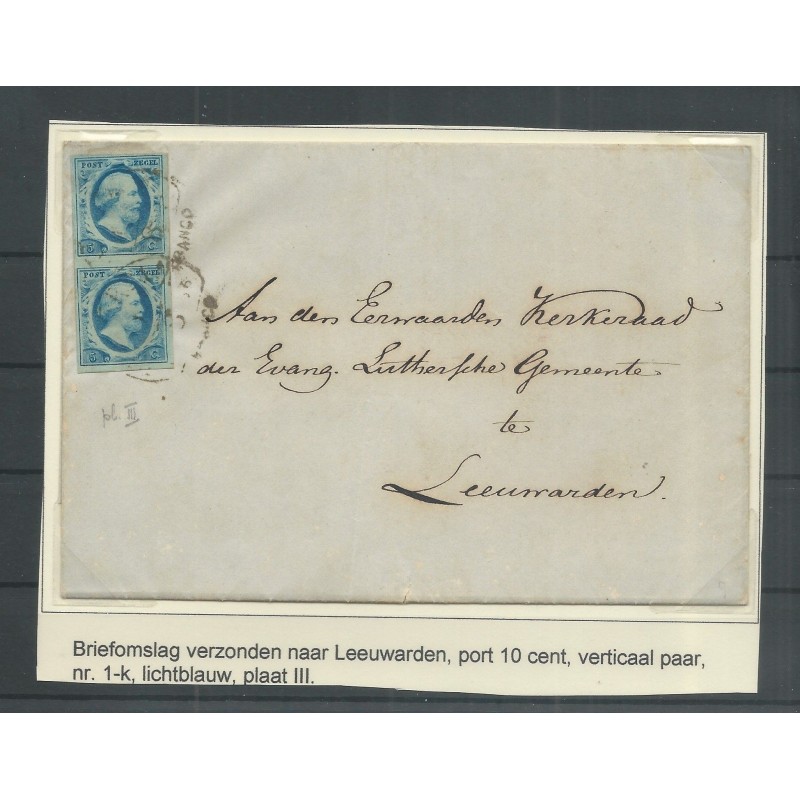 POST ZEGEL
5 C
FRANCO
POST ZEGEL
5 C
Aan den Eerwaarden Kerkeraad
der Evang. Luthersche Gemeente
te
Leeuwarden.
pl. III
Briefomslag verzonden naar Leeuwarden, port 10 cent, verticaal paar,
nr. 1-k, lichtblauw, plaat III.